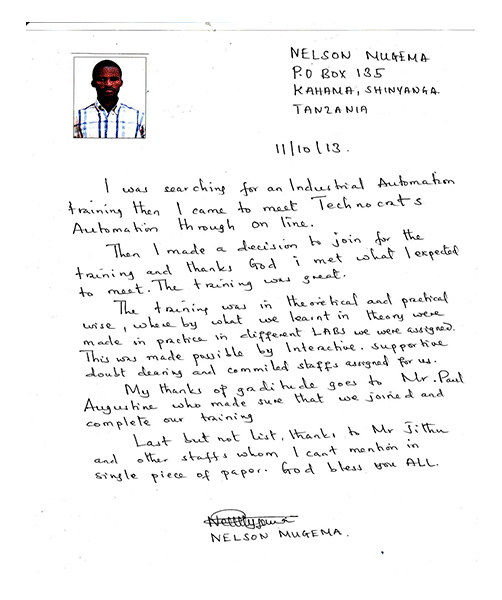 NELSON MUGEMA
P.O BOX 135
KAHAMA, SHINYANGA
TANZANIA
11/10/13.
I was searching for an Industrial Automation
training then I came to meet Technocrats
Automation through on line.
Then I made a decision to join for the
training and thanks God i met what I expected
to meet. The training was great.
The training was in theoretical and practical
wise, where by what we learnt in theory were
made in practice in different LABs we were assigned.
This was made possible by Interactive. supportive
doubt clearing and commited staffs assigned for us.
My thanks of graditude goes to Mr. Paul
Augustine who made sure that we joined and
complete our training
Last but not list, thanks to Mr Jithu
and other staffs whom I cant mention in
single piece of paper. God bless you ALL.
NELSON MUGEMA.